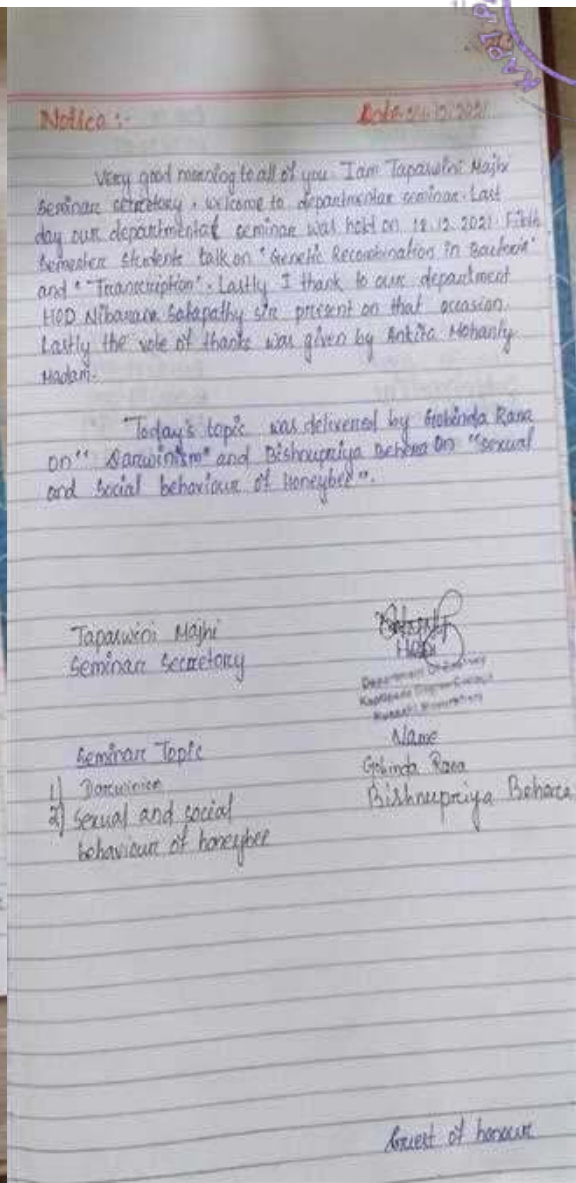 Notice :-
Very good morning to all of you. I am Tapaswini Majhi
Seminar secretary. welcome to departmental seminar. Last
day our departmental seminar was held on 18.12.2021. Fifth
Semester Students talk on "Genetic Recombination in Bacteria"
and "Transcription". Lastly I thank to our department
HOD Nibarana Satapathy sir present on that occasion.
Lastly the vote of thanks was given by Ankita Mohanty
Madam.
Today's topic was delivered by Gobinda Rana
on "Darwinism" and Bishnupriya Behera on "Sexual
and Social behaviour of Honeybee".
Tapaswini Majhi
Seminar Secretary
HOD
Seminar Topic
Name
1) Darwinism
Gobinda Rana
2) Sexual and social
behaviour of honeybee
Bishnupriya Behera
Guest of honour